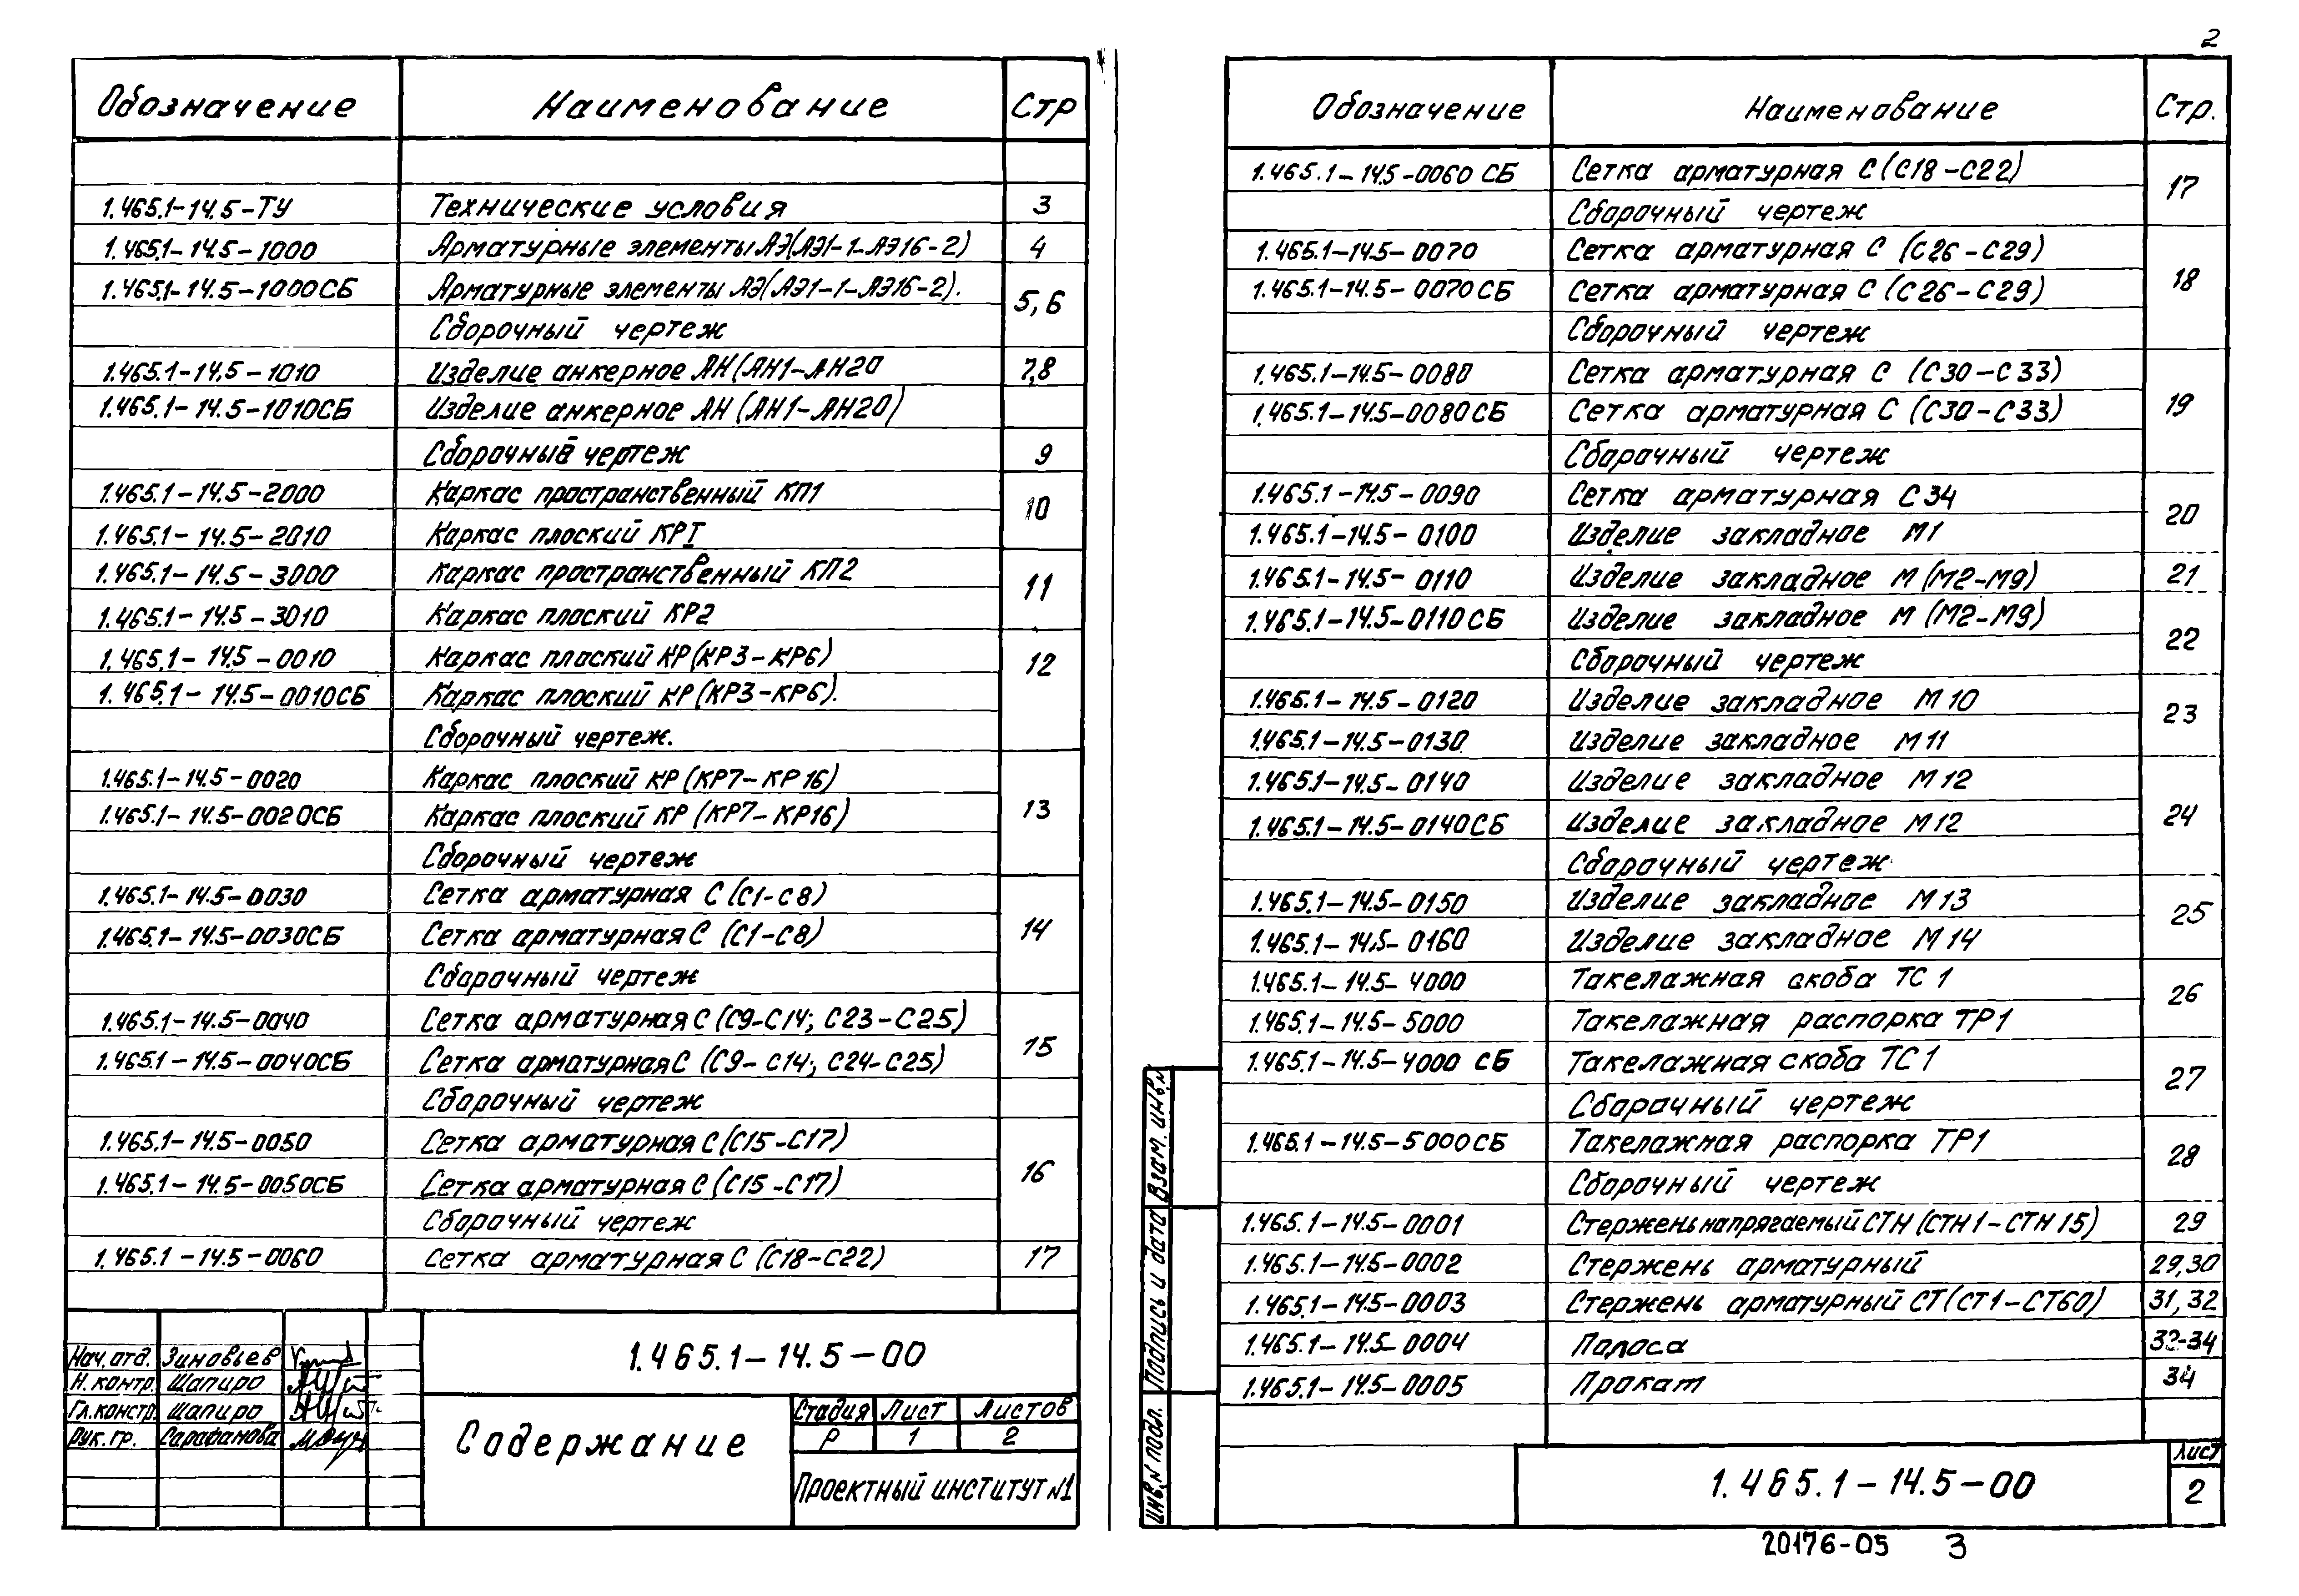 2
Обозначение Наименование Стр
1.465.1-14.5-ТУ Технические условия 3
1.465.1-14.5-1000 Арматурные элементы АЭ(АЭ1-1-АЭ16-2) 4
1.465.1-14.5-1000СБ Арматурные элементы АЭ(АЭ1-1-АЭ16-2). 5,6
Сборочный чертеж
1.465.1-14.5-1010 Изделие анкерное АН(АН1-АН20 7,8
1.465.1-14.5-1010СБ Изделие анкерное АН (АН1-АН20)
Сборочный чертеж 9
1.465.1-14.5-2000 Каркас пространственный КП1 10
1.465.1-14.5-2010 Каркас плоский КРI
1.465.1-14.5-3000 Каркас пространственный КП2 11
1.465.1-14.5-3010 Каркас плоский КР2
1.465.1-14.5-0010 Каркас плоский КР(КР3-КР6) 12
1.465.1-14.5-0010СБ Каркас плоский КР(КР3-КР6).
Сборочный чертеж.
1.465.1-14.5-0020 Каркас плоский КР(КР7-КР16) 13
1.465.1-14.5-0020СБ Каркас плоский КР (КР7-КР16)
Сборочный чертеж
1.465.1-14.5-0030 Сетка арматурная С (С1-С8) 14
1.465.1-14.5-0030СБ Сетка арматурная С (С1-С8)
Сборочный чертеж
1.465.1-14.5-0040 Сетка арматурная С (С9-С14; С23-С25) 15
1.465.1-14.5-0040СБ Сетка арматурная С (С9-С14; С24-С25)
Сборочный чертеж
1.465.1-14.5-0050 Сетка арматурная С(С15-С17) 16
1.465.1-14.5-0050СБ Сетка арматурная С (С15-С17)
Сборочный чертеж
1.465.1-14.5-0060 Сетка арматурная С (С18-С22) 17
1.465.1-14.5-00
Нач.отд. Зиновьев
Н.контр. Шапиро
Гл.констр. Шапиро
Рук.гр. Сарафанова
Содержание
Стадия Лист Листов
Р 1 2
Проектный институт N1
Обозначение Наименование Стр.
1.465.1-14.5-0060 СБ Сетка арматурная С(С18-С22) 17
Сборочный чертеж
1.465.1-14.5-0070 Сетка арматурная С (С26-С29) 18
1.465.1-14.5-0070СБ Сетка арматурная С (С26-С29)
Сборочный чертеж
1.465.1-14.5-0080 Сетка арматурная С (С30-С33) 19
1.465.1-14.5-0080СБ Сетка арматурная С (С30-С33)
Сборочный чертеж
1.465.1-14.5-0090 Сетка арматурная С34 20
1.465.1-14.5-0100 Изделие закладное М1
1.465.1-14.5-0110 Изделие закладное М(М2-М9) 21
1.465.1-14.5-0110СБ Изделие закладное М (М2-М9) 22
Сборочный чертеж
1.465.1-14.5-0120 Изделие закладное М10 23
1.465.1-14.5-0130 Изделие закладное М11
1.465.1-14.5-0140 Изделие закладное М12 24
1.465.1-14.5-0140СБ Изделие закладное М12
Сборочный чертеж
1.465.1-14.5-0150 Изделие закладное М13 25
1.465.1-14.5-0160 Изделие закладное М14
1.465.1-14.5-4000 Такелажная скоба ТС1 26
1.465.1-14.5-5000 Такелажная распорка ТР1
1.465.1-14.5-4000 СБ Такелажная скоба ТС1 27
Сборочный чертеж
1.465.1-14.5-5000СБ Такелажная распорка ТР1 28
Сборочный чертеж
1.465.1-14.5-0001 Стержень напрягаемый СТН(СТН1-СТН15) 29
1.465.1-14.5-0002 Стержень арматурный 29,30
1.465.1-14.5-0003 Стержень арматурный СТ(СТ1-СТ60) 31,32
1.465.1-14.5-0004 Полоса 33-34
1.465.1-14.5-0005 Прокат 34
Взам. инв.N
Подпись и дата
Инв.N подл.
1.465.1-14.5-00
Лист
2
20176-05 3